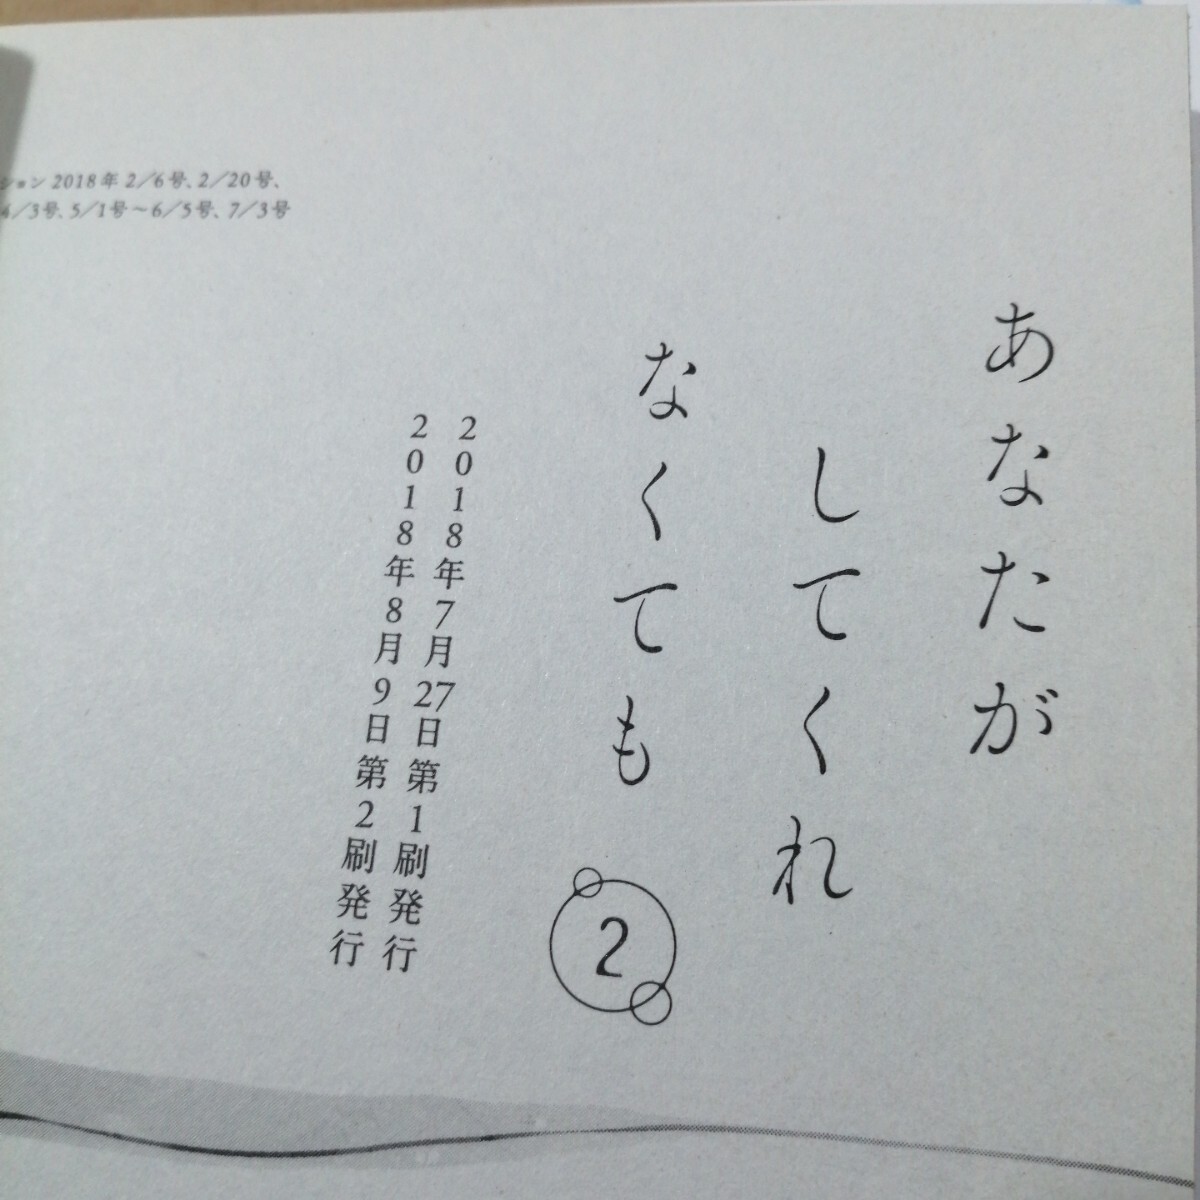 ション2018年2／6号、2／20号、
4／3号、5／1号～6／5号、7／3号
あなたが
してくれ
なくても
2
2018年7月27日第1刷発行
2018年8月9日第2刷発行